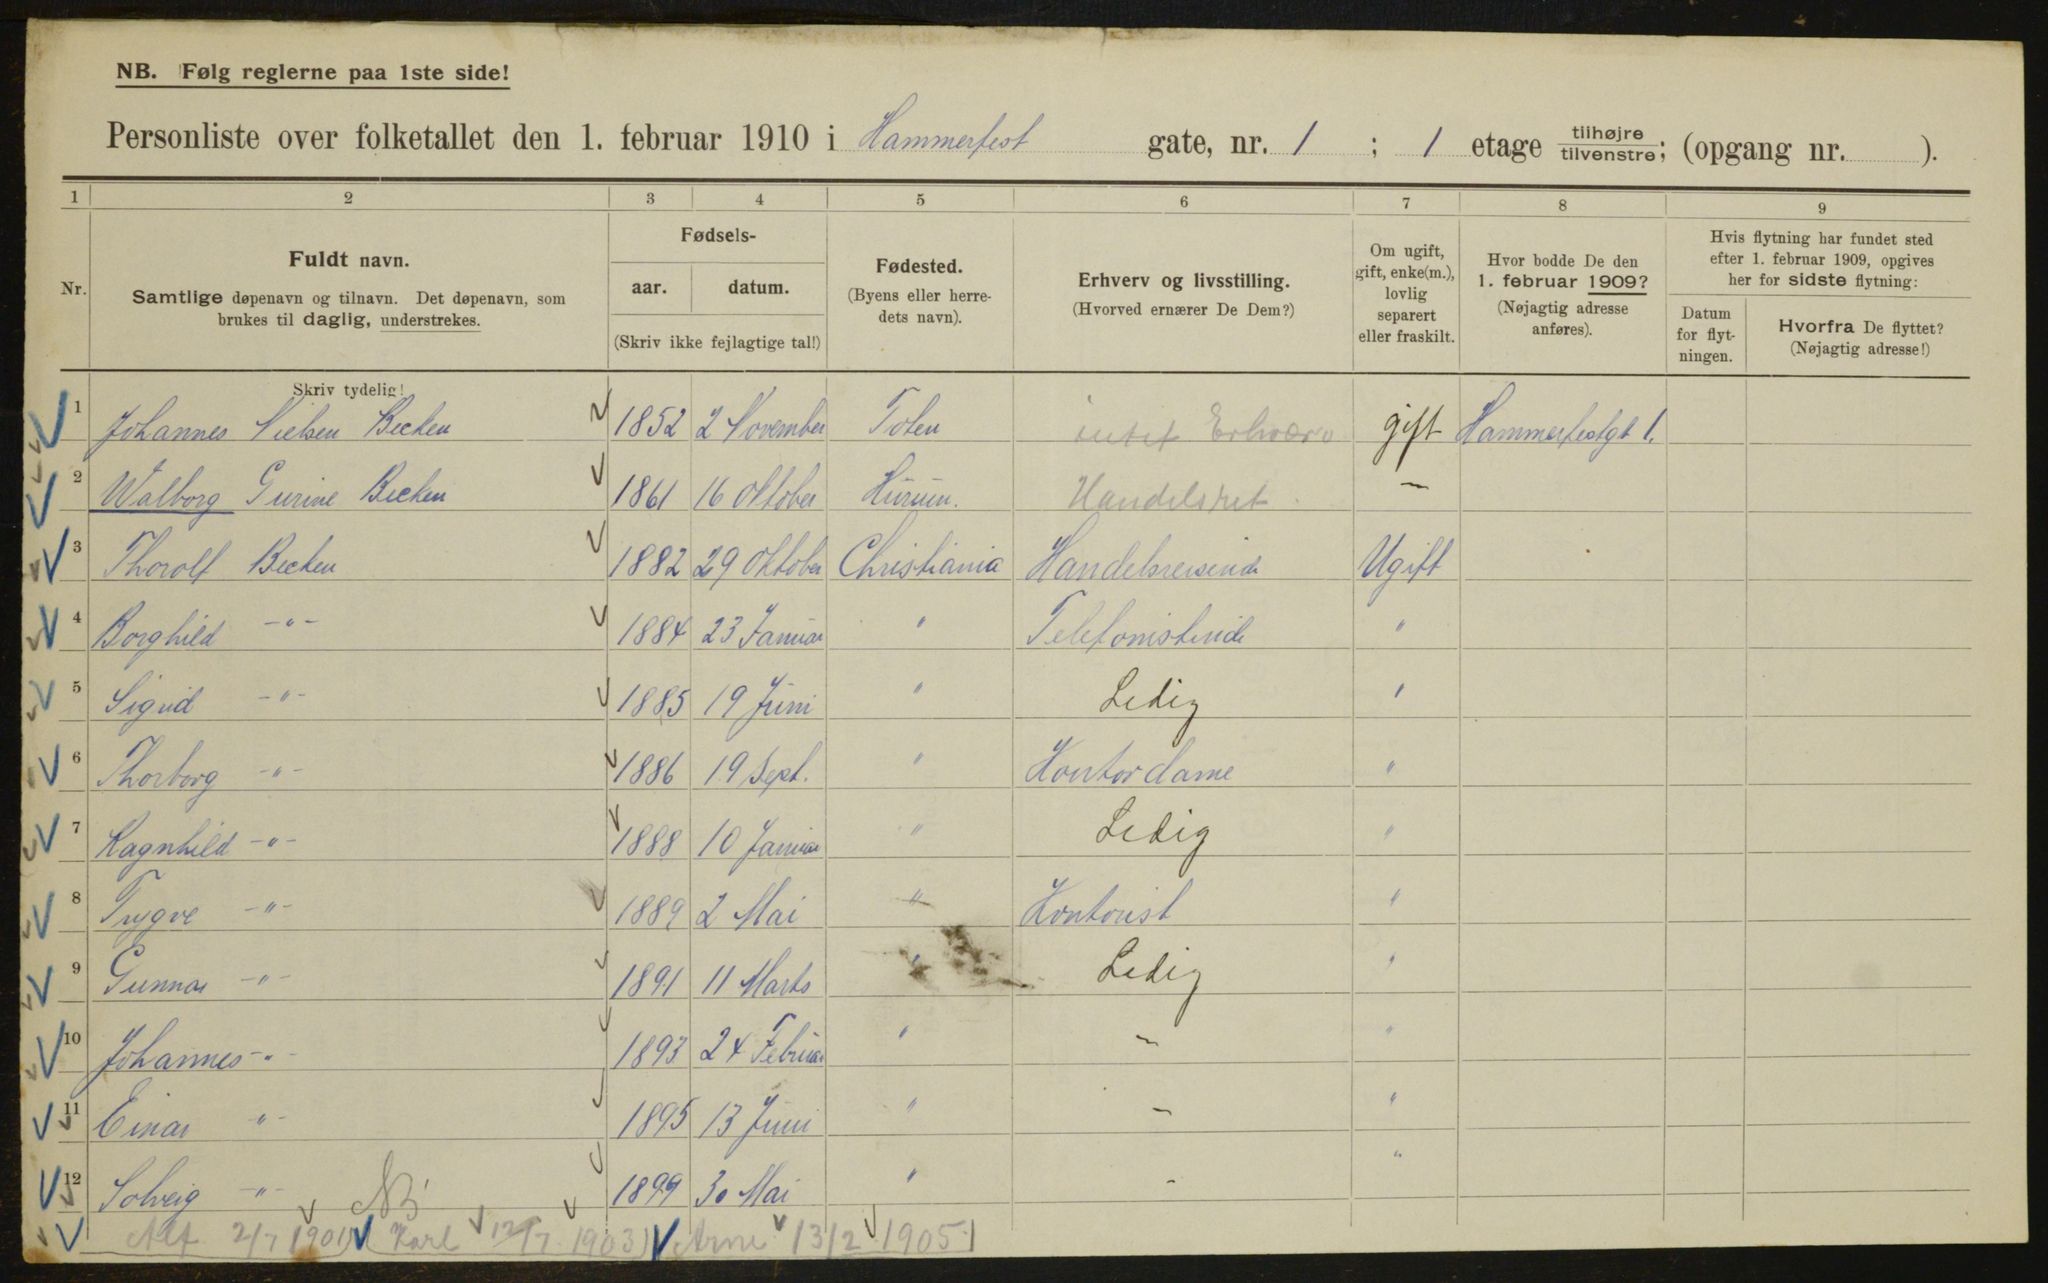 NB. Følg reglerne paa 1ste side!
Personliste over folketallet den 1. februar 1910 i Hammerfest gate, nr. 1 ; 1 etage tilhøjre tilvenstre; (opgang nr. ).
1 2 3 4 5 6 7 8 9
Nr.
Fuldt navn.
Samtlige døpenavn og tilnavn. Det døpenavn, som
brukes til daglig, understrekes.
Skriv tydelig!
Fødsels-
aar. datum.
(Skriv ikke fejlagtige tal!)
Fødested.
(Byens eller herre-
dets navn).
Erhverv og livsstilling.
(Hvorved ernærer De Dem?)
Om ugift,
gift, enke(m.),
lovlig
separert
eller fraskilt.
Hvor bodde De den
1. februar 1909?
(Nøjagtig adresse
anføres).
Hvis flytning har fundet sted
efter 1. februar 1909, opgives
her for sidste flytning:
Datum
for flyt-
ningen.
Hvorfra De flyttet?
(Nøjagtig adresse!)
1 Johannes Nielsen Becken 1852 2 November Toten intet Erhverv gift Hammerfestgt 1.
2 Walborg Gurine Becken 1861 16 Oktober Hurum. Handelsret "
3 Thorolf Becken 1882 29 Oktober Christiania Handelsreisende Ugift
4 Borghild -"- 1884 23 Januar " Telefonistinde "
5 Sigrid -"- 1885 19 Juni " Ledig "
6 Thorborg -"- 1886 19 Sept. " Kontordame "
7 Ragnhild -"- 1888 10 Januar " Ledig "
8 Trygve -"- 1889 2 Mai " Kontorist "
9 Gunnar -"- 1891 11 Marts " Ledig "
10 Johannes -"- 1893 24 Februar " " "
11 Einar -"- 1895 13 Juni " " "
12 Solveig -"- NB! 1899 30 Mai " " "
Alf 2/7 1901) Karl 12/7 1903) Arne 13/2 1905)